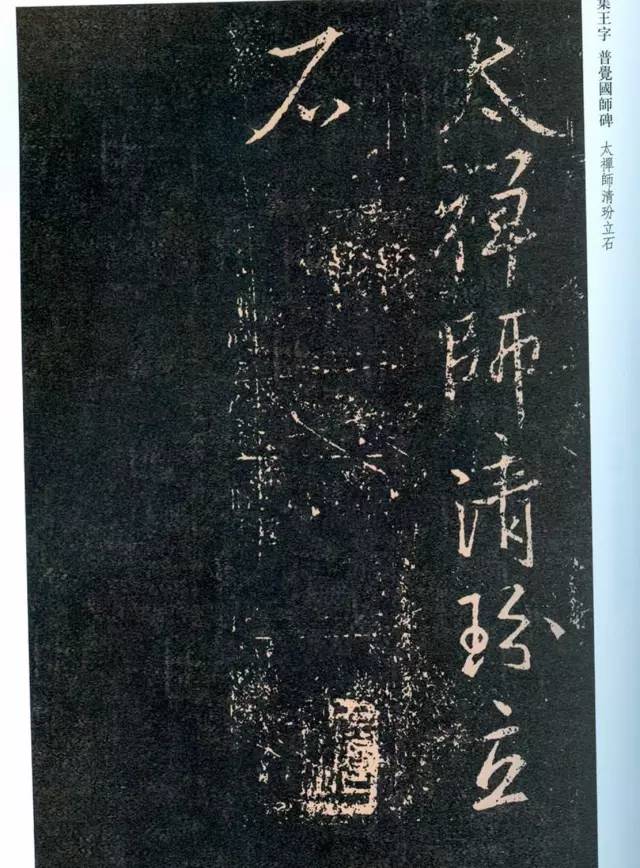 集王字 普覺國師碑 太禪師清玢立石
太禪師清玢立
石